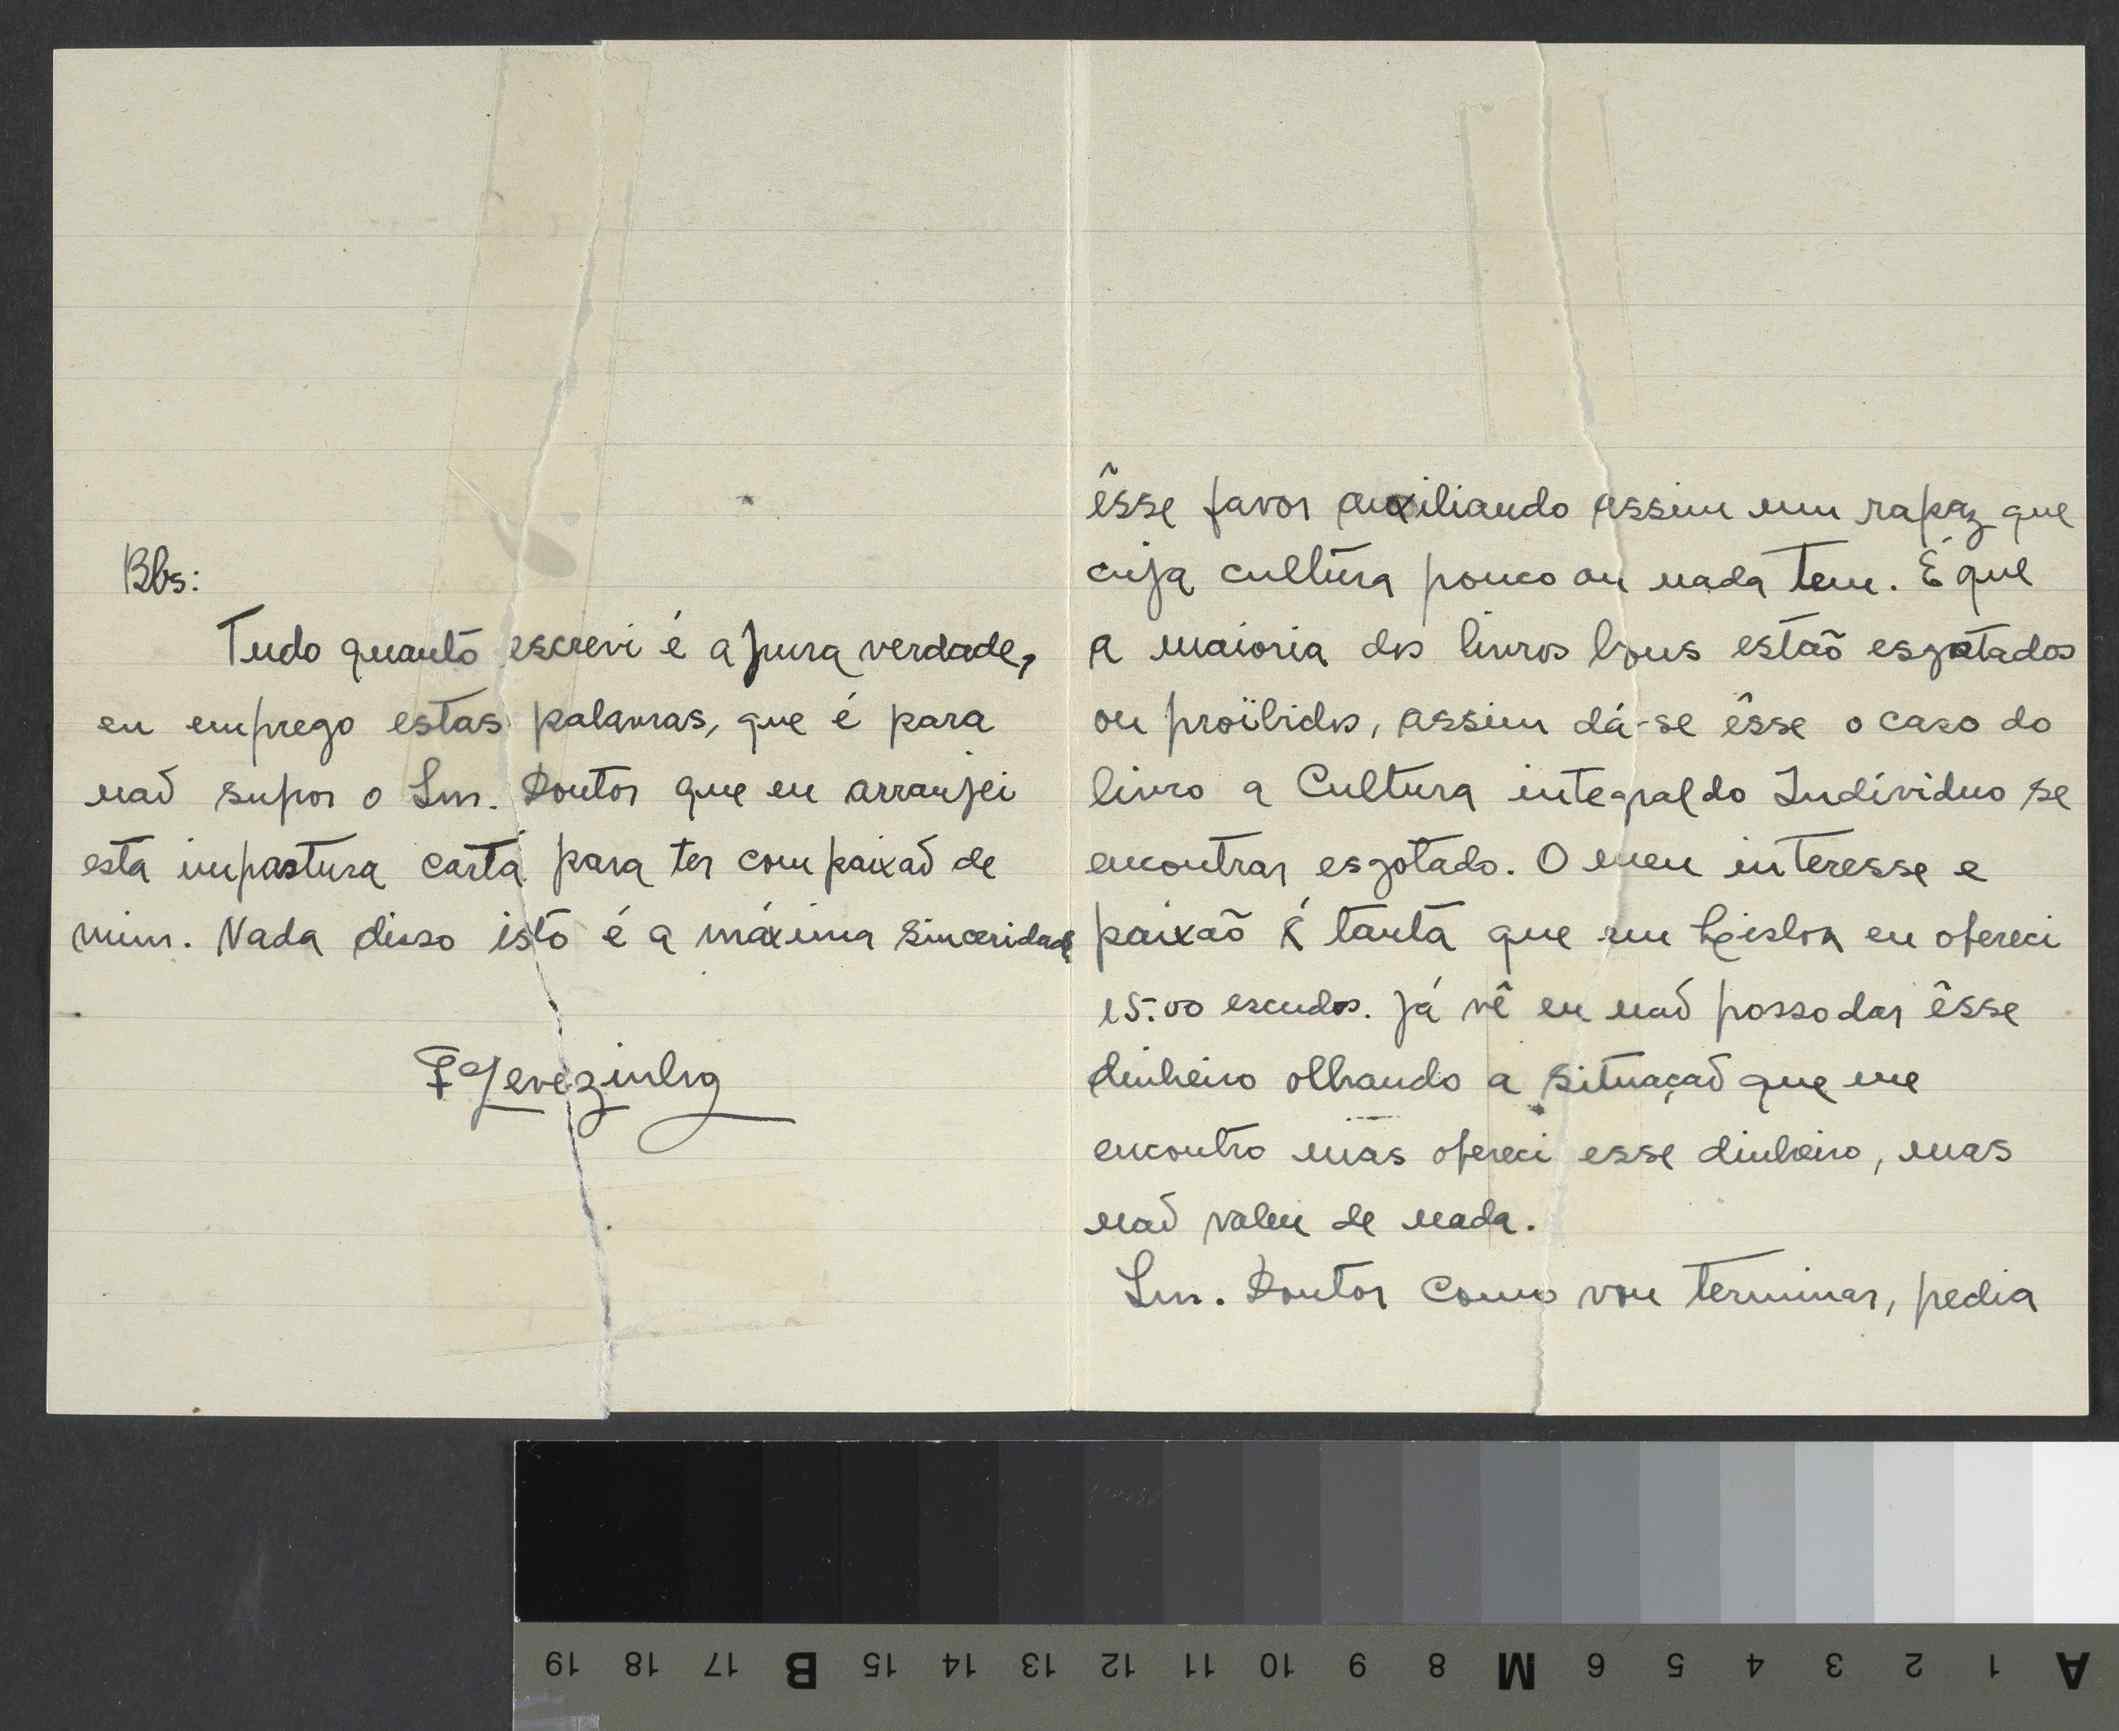 Obs:
Tudo quanto escrevi é a pura verdade,
eu emprego estas palavras, que é para
não supor o Snr. Doutor que eu arranjei
esta impostura carta para ter compaixão de
mim. Nada disso isto é a máxima sinceridade
êsse favor auxiliando assim um rapaz que
cuja cultura pouco ou nada tem. É que
a maioria dos livros bons estão esgotados
ou proïbidos, assim dá-se êsse o caso do
livro a Cultura integral do Indíviduo se
encontrar esgotado. O meu interesse e
paixão é tanta que em Lisboa eu ofereci
15.00 escudos. Já vê eu não posso dar êsse
dinheiro olhando a situação que me
encontro mas ofereci esse dinheiro, mas
não valeu de nada.
Snr. Doutor como vou terminar, pedia
19 18 17 B 15 14 13 12 11 10 9 8 M 6 5 4 3 2 1 A